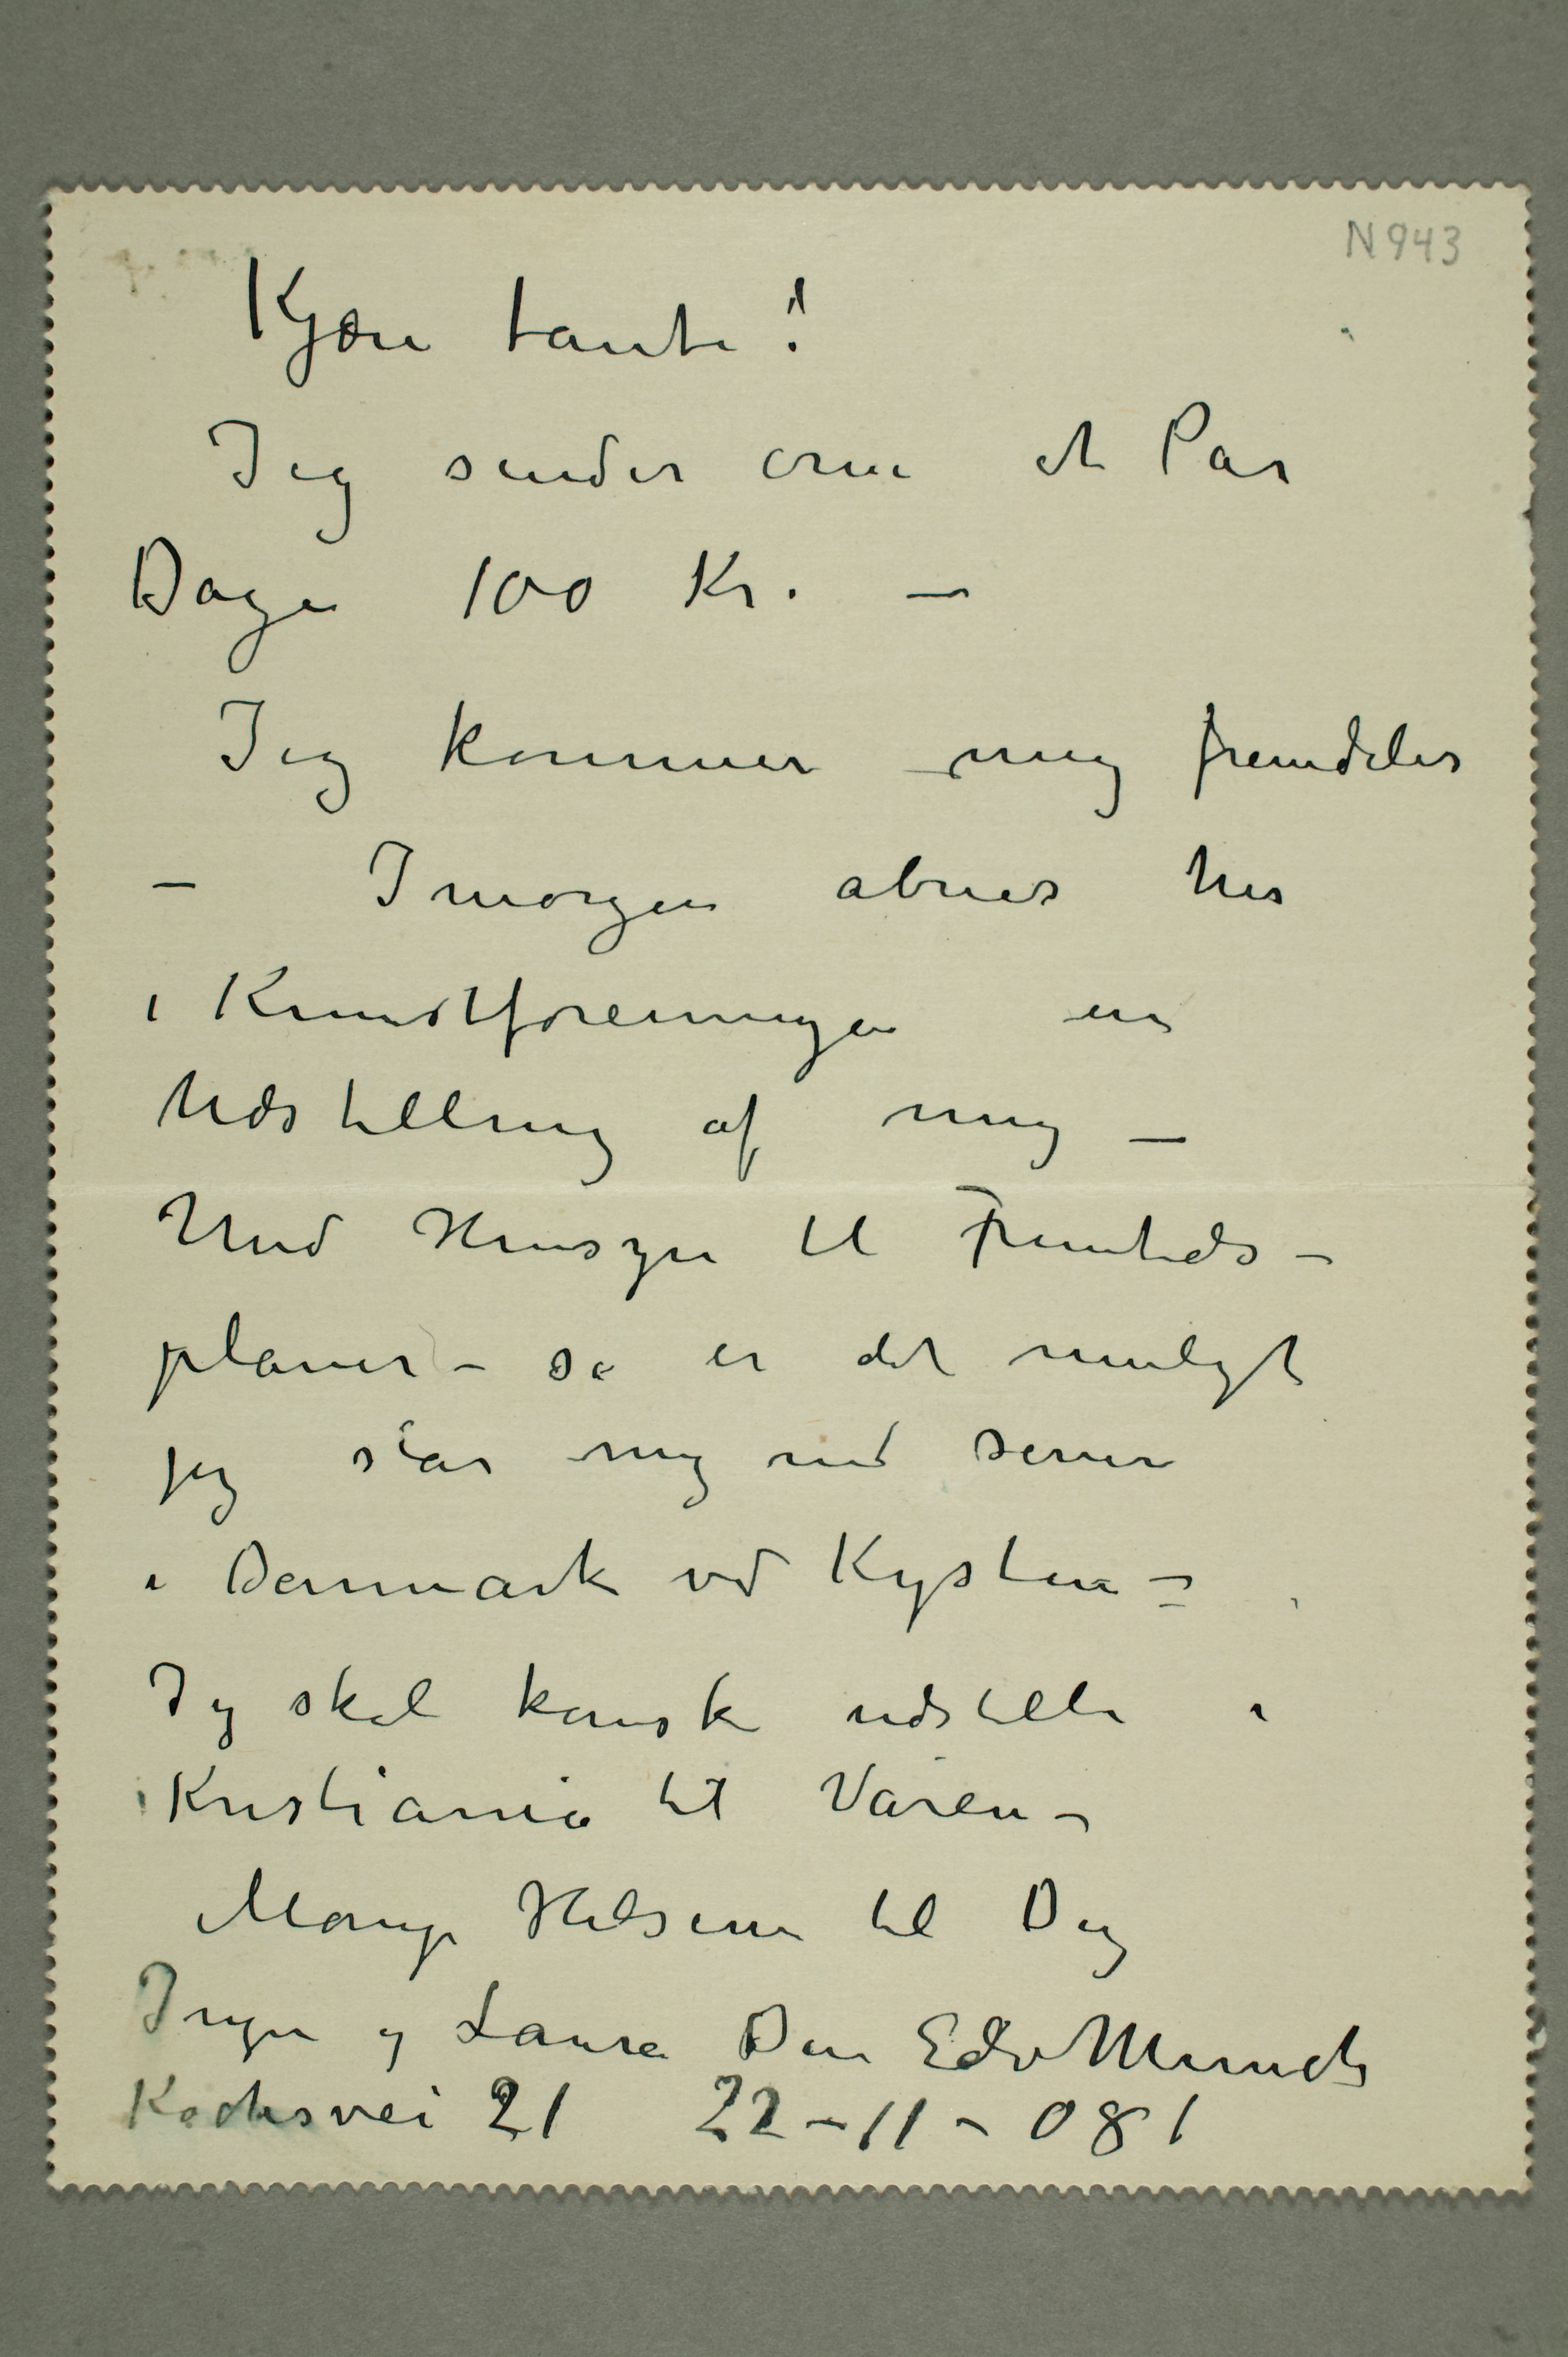 N943
Kjære tante!
Jeg sender om et Par
Dage 100 Kr. –
Jeg kommer mig fremdeles
– Imorgen abnes her
i Kunstforeningen en
Udstilling af mig –
Med Hensyn til Fremtids-
planer – så er det muligt
jeg slår mig ned senere
i Danmark ved Kysten –
Jeg skal kanske udstille i
Kristiania til Våren –
Mange Hilsener til Dig
Inger og Laura Din Edv Munch
Kochsvei 21 22–11–08